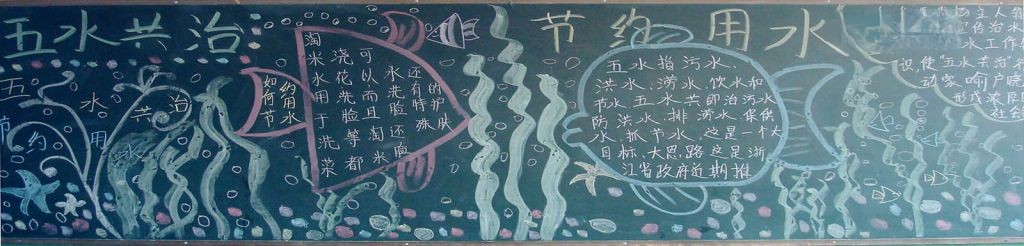 五水共治
节约用水
五水共治
节约用水
如何节
约用水
淘米水用于洗菜
浇花洗脸等都
可以,而且淘米
水洗脸还
还有特殊
的护肤
五水指污水、
洪水、涝水、饮水和
节水,五水共即治污水
防洪水、排涝水、保供
水、抓节水。这是一个大
目标、大思路这是浙
江省政府近期推
水工作
识,使"五水共治"
动家喻户晓
形成
社会